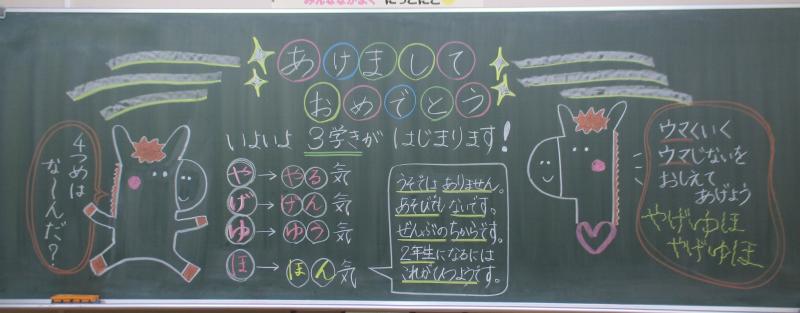 みんななかよく にっこにこ
あけまして
おめでとう
いよいよ 3学きが はじまります!
4つめは
な〜んだ?
や→やる気
げ→げん気
ゆ→ゆう気
ほ→ほん気
うそでは ありません。
あそびでも ないです。
ぜんぶの ちからです。
2年生になるには
これがひつようです。
ウマくいく
ウマじないを
おしえて
あげよう
やげゆほ
やげゆほ